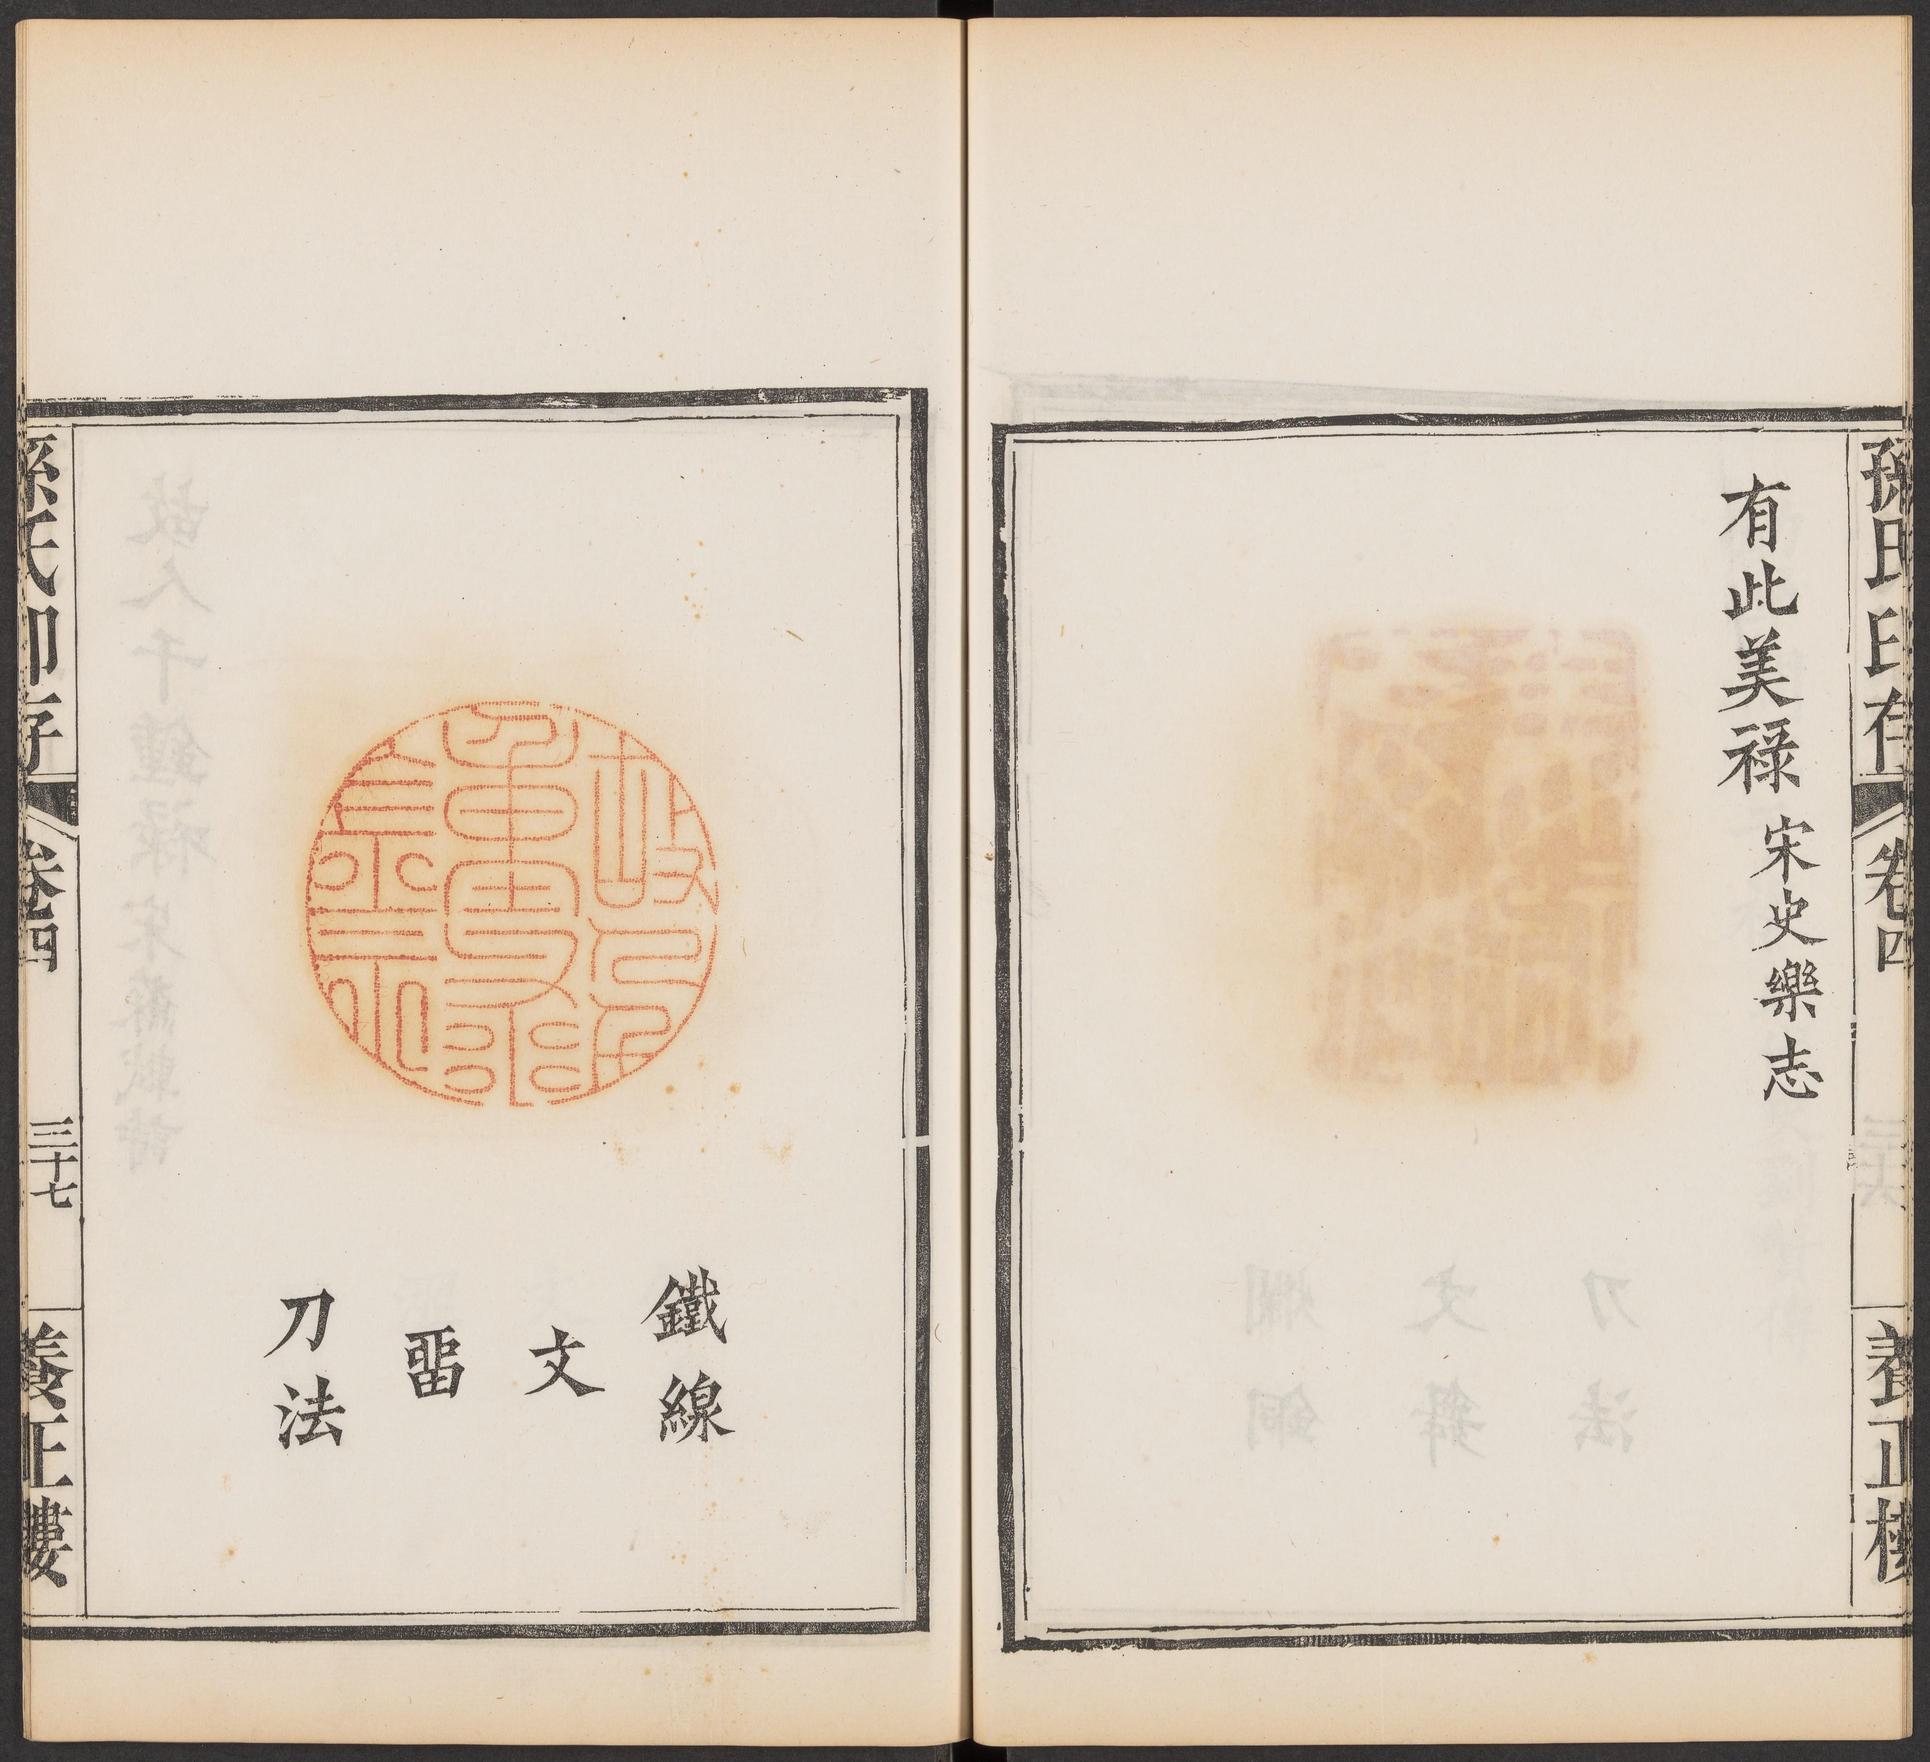 孫氏印存
卷四
養正樓
有此美祿 宋史樂志
鐵線
文
畱
刀法
孫氏印存
卷四
三十七
養正樓